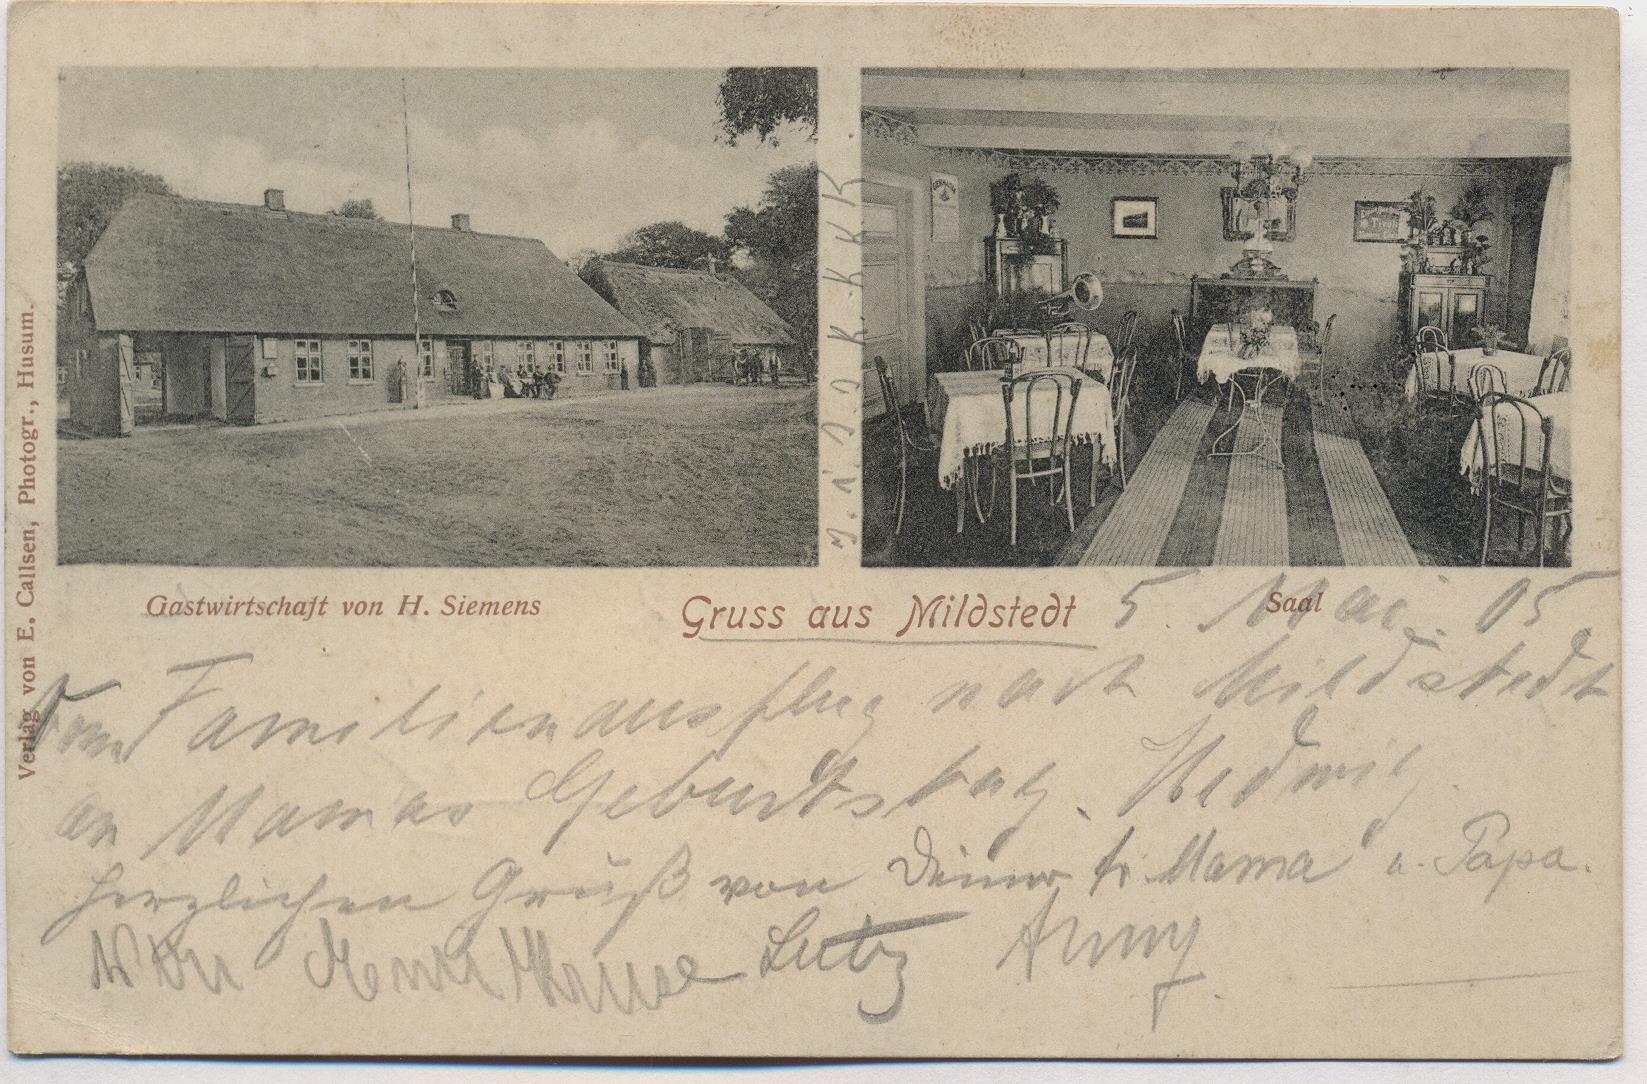 Verlag von E. Callsen, Photogr., Husum.
Gastwirtschaft von H. Siemens
Gruss aus Mildstedt
Saal
5. Mai. 05.
Vom Familienausflug nach Mildstedt
an Mamas Geburtstag. Hedwig
herzlichen Gruß von Deiner tr. Mama u. Papa.
Lutz Anny